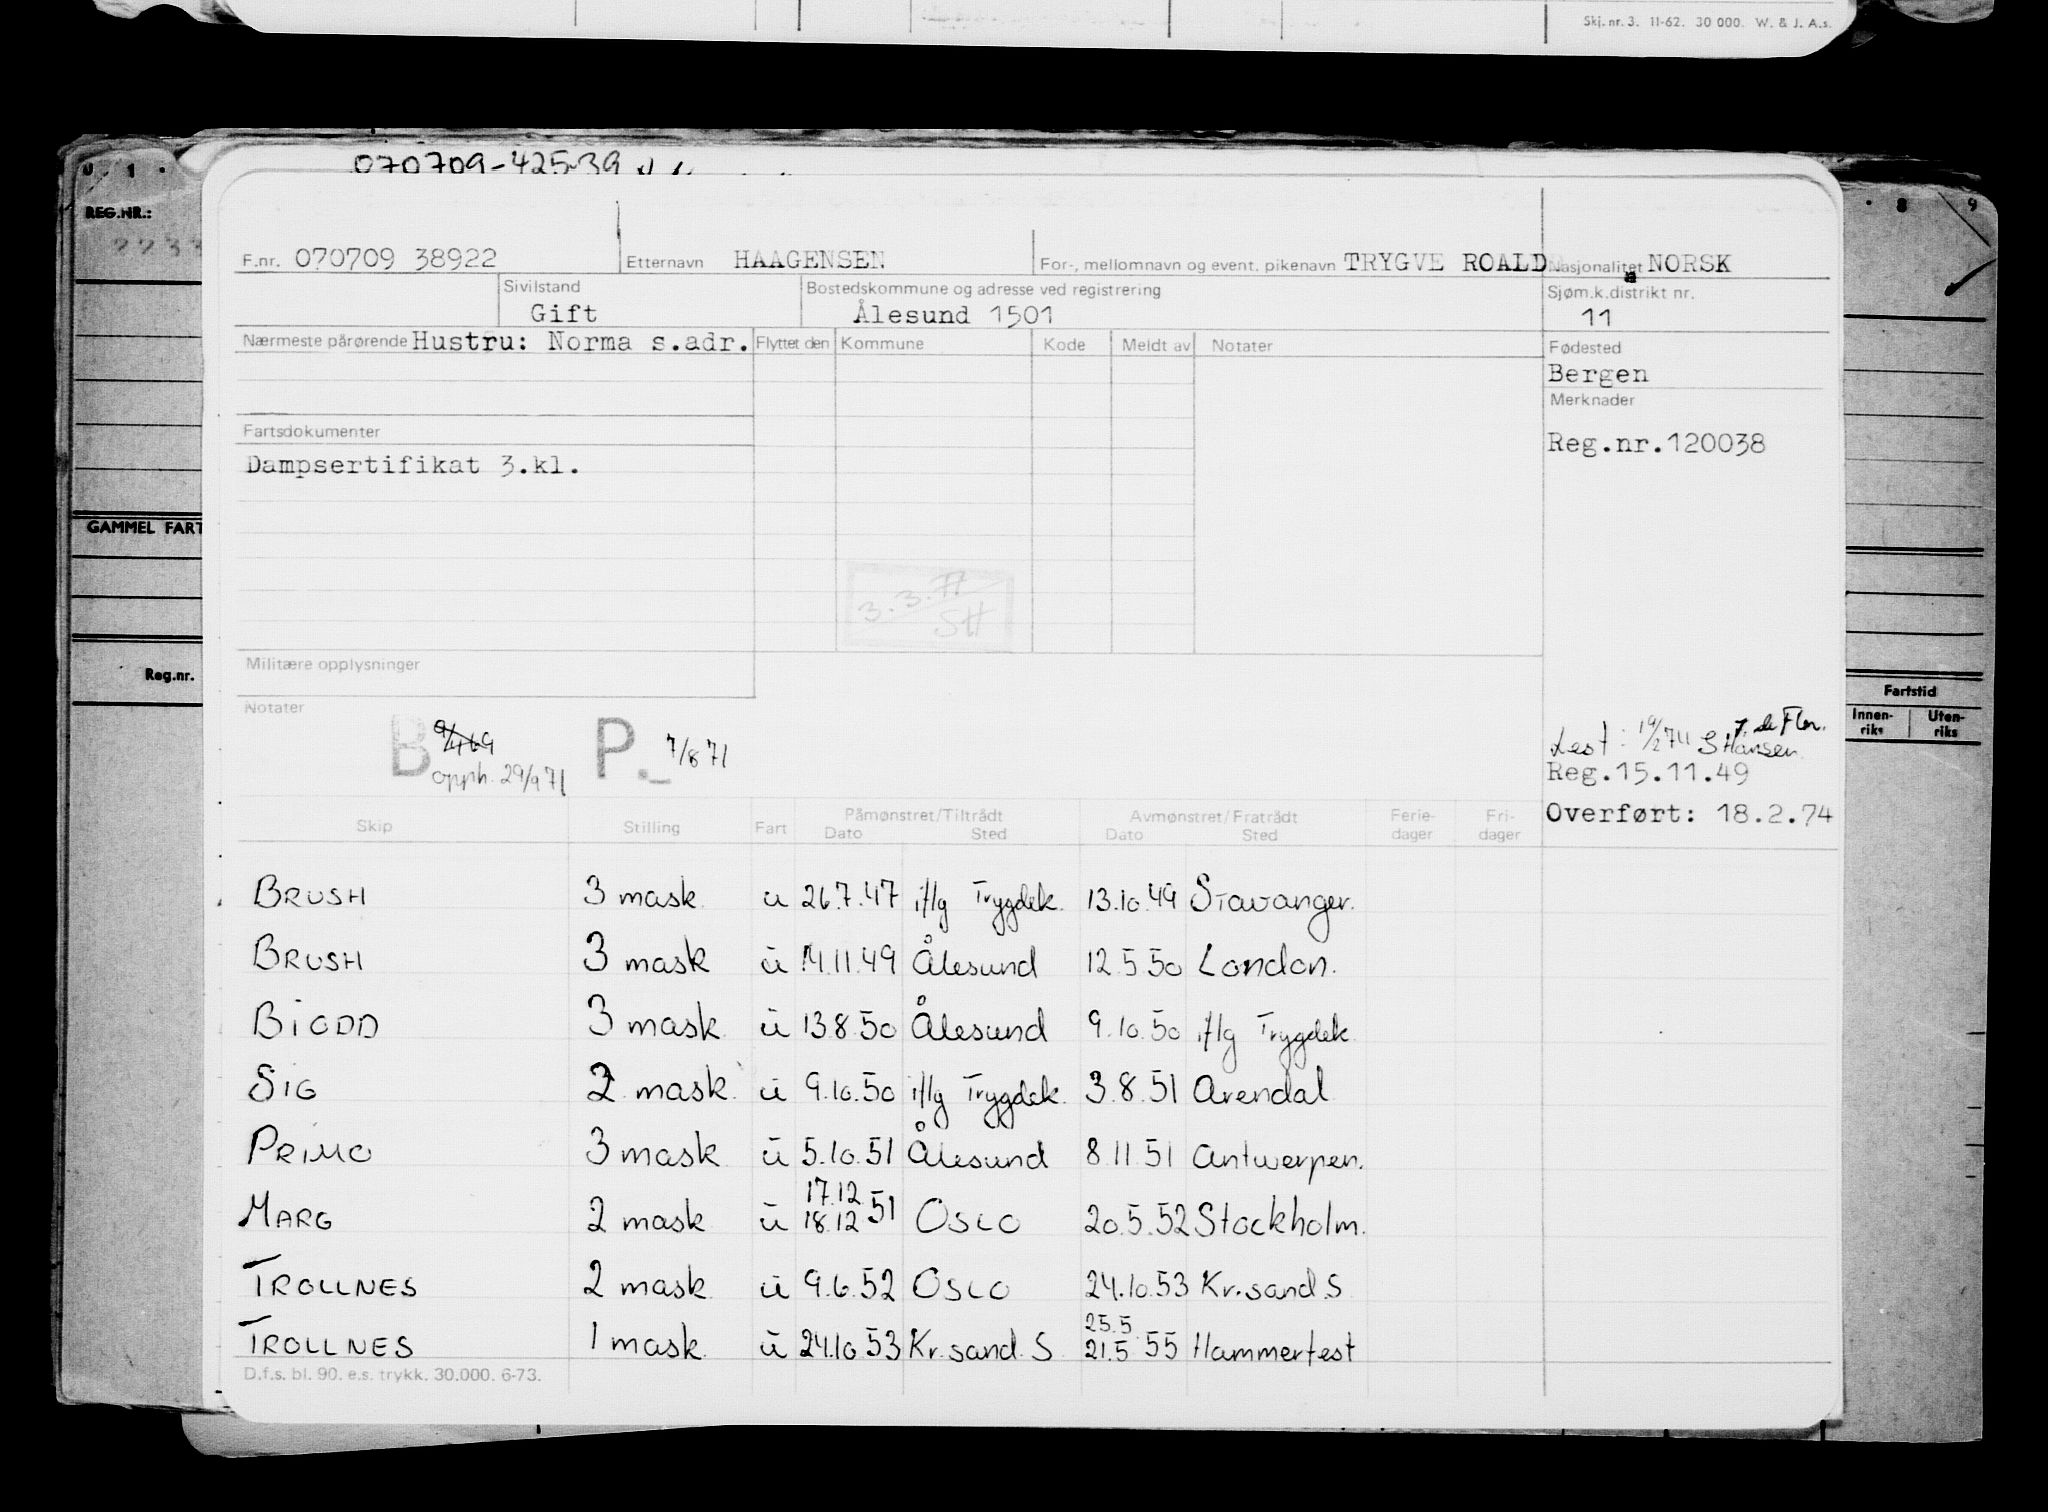 Skj. nr. 3. 11-62. 30 000. W. & J. A.s.
070709-42539
REG.NR.:
8 9
F.nr. 070709 38922 Etternavn HAAGENSEN For-, mellomnavn og event. pikenavn TRYGVE ROALD Nasjonalitet NORSK
Sivilstand Bostedskommune og adresse ved registrering Sjøm.k.distrikt nr.
Gift Ålesund 1501 11
Nærmeste pårørende Hustru: Norma s.adr. Flyttet den Kommune Kode Meldt av Notater Fødested
Bergen
Merknader
Fartsdokumenter Reg.nr.120038
Dampsertifikat 3.kl.
GAMMEL FART
3.3.77
SH
Militære opplysninger
Reg.nr.
Fartstid
Innen-riks Uten-riks
Notater
B 9/4 69 P. 7/8 71
opph. 29/9 71
Lest: 19/2 74 S Hansen
Reg.15.11.49
Overført: 18.2.74
Skip Stilling Fart Påmønstret/Tiltrådt Dato Sted Avmønstret/Fratrådt Dato Sted Ferie-dager Fri-dager
BRUSH 3 mask. u 26.7.47 iflg Trygdek. 13.10.49 Stavanger.
BRUSH 3 mask u 14.11.49 Ålesund 12.5.50 London.
BIODD 3 mask. u 13.8.50 Ålesund 9.10.50 iflg Trygdek.
SIG 2 mask. u 9.10.50 iflg Trygdek. 3.8.51 Arendal
PRIMO 3 mask. u 5.10.51 Ålesund 8.11.51 Antwerpen.
MARG 2 mask u 17.12 18.12 51 OSLO 20.5.52 Stockholm.
TROLLNES 2 mask. u 9.6.52 OSLO 24.10.53 Kr.sand.S
TROLLNES 1 mask. u 24.10.53 Kr.sand.S 25.5 21.5 55 Hammerfest
D.f.s. bl. 90. e.s. trykk. 30.000. 6-73.